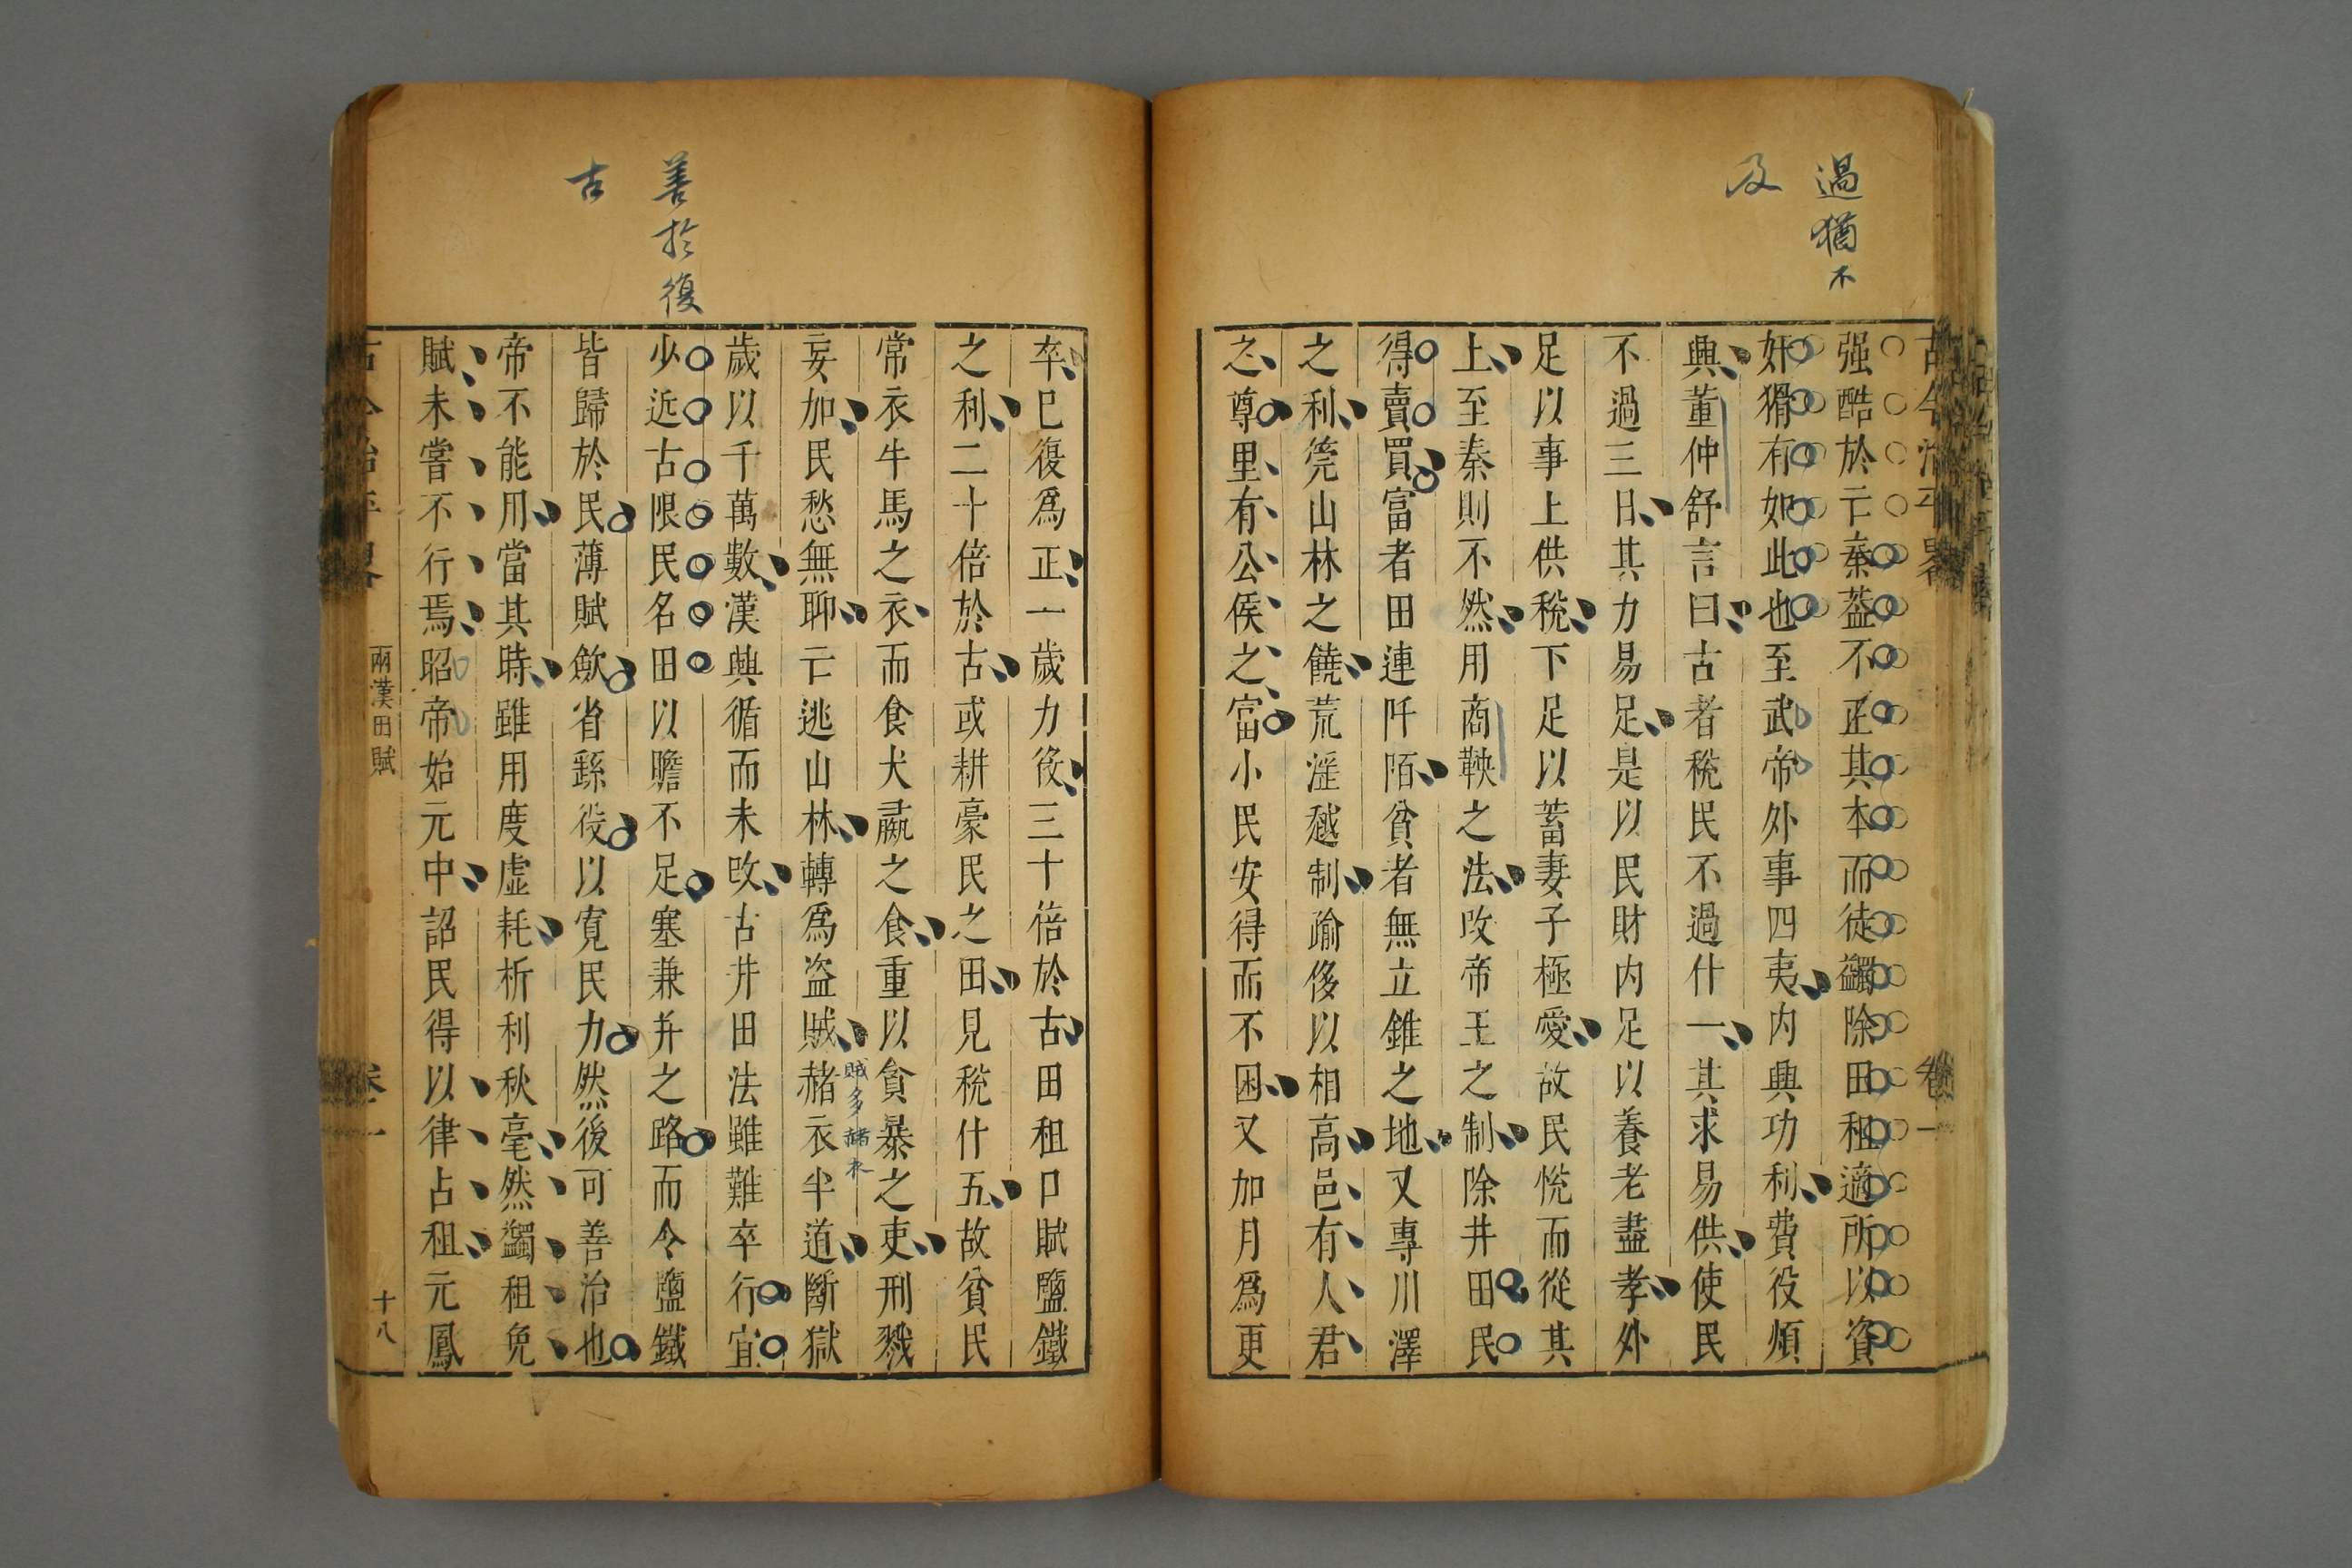 過猶不
及
强酷於亡秦葢不正其本而徒蠲除田租適所以資
奸猾有如此也至武帝外事四夷内興功利費役煩
興董仲舒言曰古者稅民不過什一其求易供使民
不過三日其力易足是以民財内足以養老盡孝外
足以事上供稅下足以蓄妻子極愛故民悅而從其
上至秦則不然用商鞅之法改帝王之制除井田民
得賣買富者田連阡陌貧者無立錐之地又專川澤
之利筦山林之饒荒淫越制踰侈以相高邑有人君
之尊里有公侯之富小民安得而不困又加月爲更
善於復
古
卒已復爲正一歲力役三十倍於古田租口賦鹽鐵
之利二十倍於古或耕豪民之田見稅什五故貧民
常衣牛馬之衣而食犬彘之食重以貪暴之吏刑戮
賊多赭衣
妄加民愁無聊亡逃山林轉爲盗賊赭衣半道斷獄
歲以千萬數漢興循而未改古井田法雖難卒行宜
少近古限民名田以贍不足塞兼并之路而令鹽鐵
皆歸於民薄賦斂省繇役以寬民力然後可善治也
帝不能用當其時雖用度虛耗析利秋毫然蠲租免
賦未嘗不行焉昭帝始元中詔民得以律占租元鳳
兩漢田賦
卷一
十八